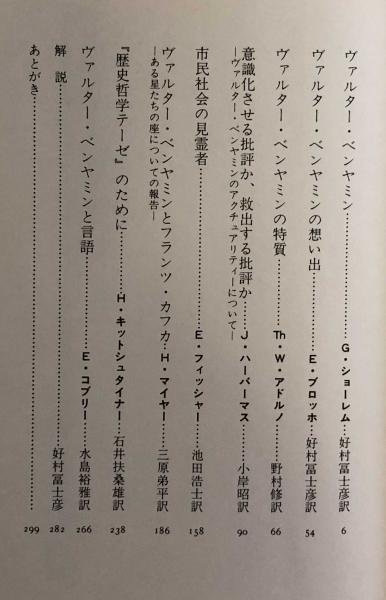 ヴァルター・ベンヤミン……………G・ショーレム…好村冨士彦訳 6
ヴァルター・ベンヤミンの想い出……………E・ブロッホ…好村冨士彦訳 54
ヴァルター・ベンヤミンの特質……………Th・W・アドルノ…野村修訳 66
意識化させる批評か、救出する批評か……J・ハーバーマス…小岸昭訳 90
―ヴァルター・ベンヤミンのアクチュアリティーについて―
市民社会の見霊者……………E・フィッシャー…池田浩士訳 158
ヴァルター・ベンヤミンとフランツ・カフカ…H・マイヤー…三原弟平訳 186
―ある星たちの座についての報告―
『歴史哲学テーゼ』のために……………H・キットシュタイナー…石井扶桑雄訳 238
ヴァルター・ベンヤミンと言語……………E・コブリー…水島裕雅訳 266
解説……………好村冨士彦 282
あとがき……………299